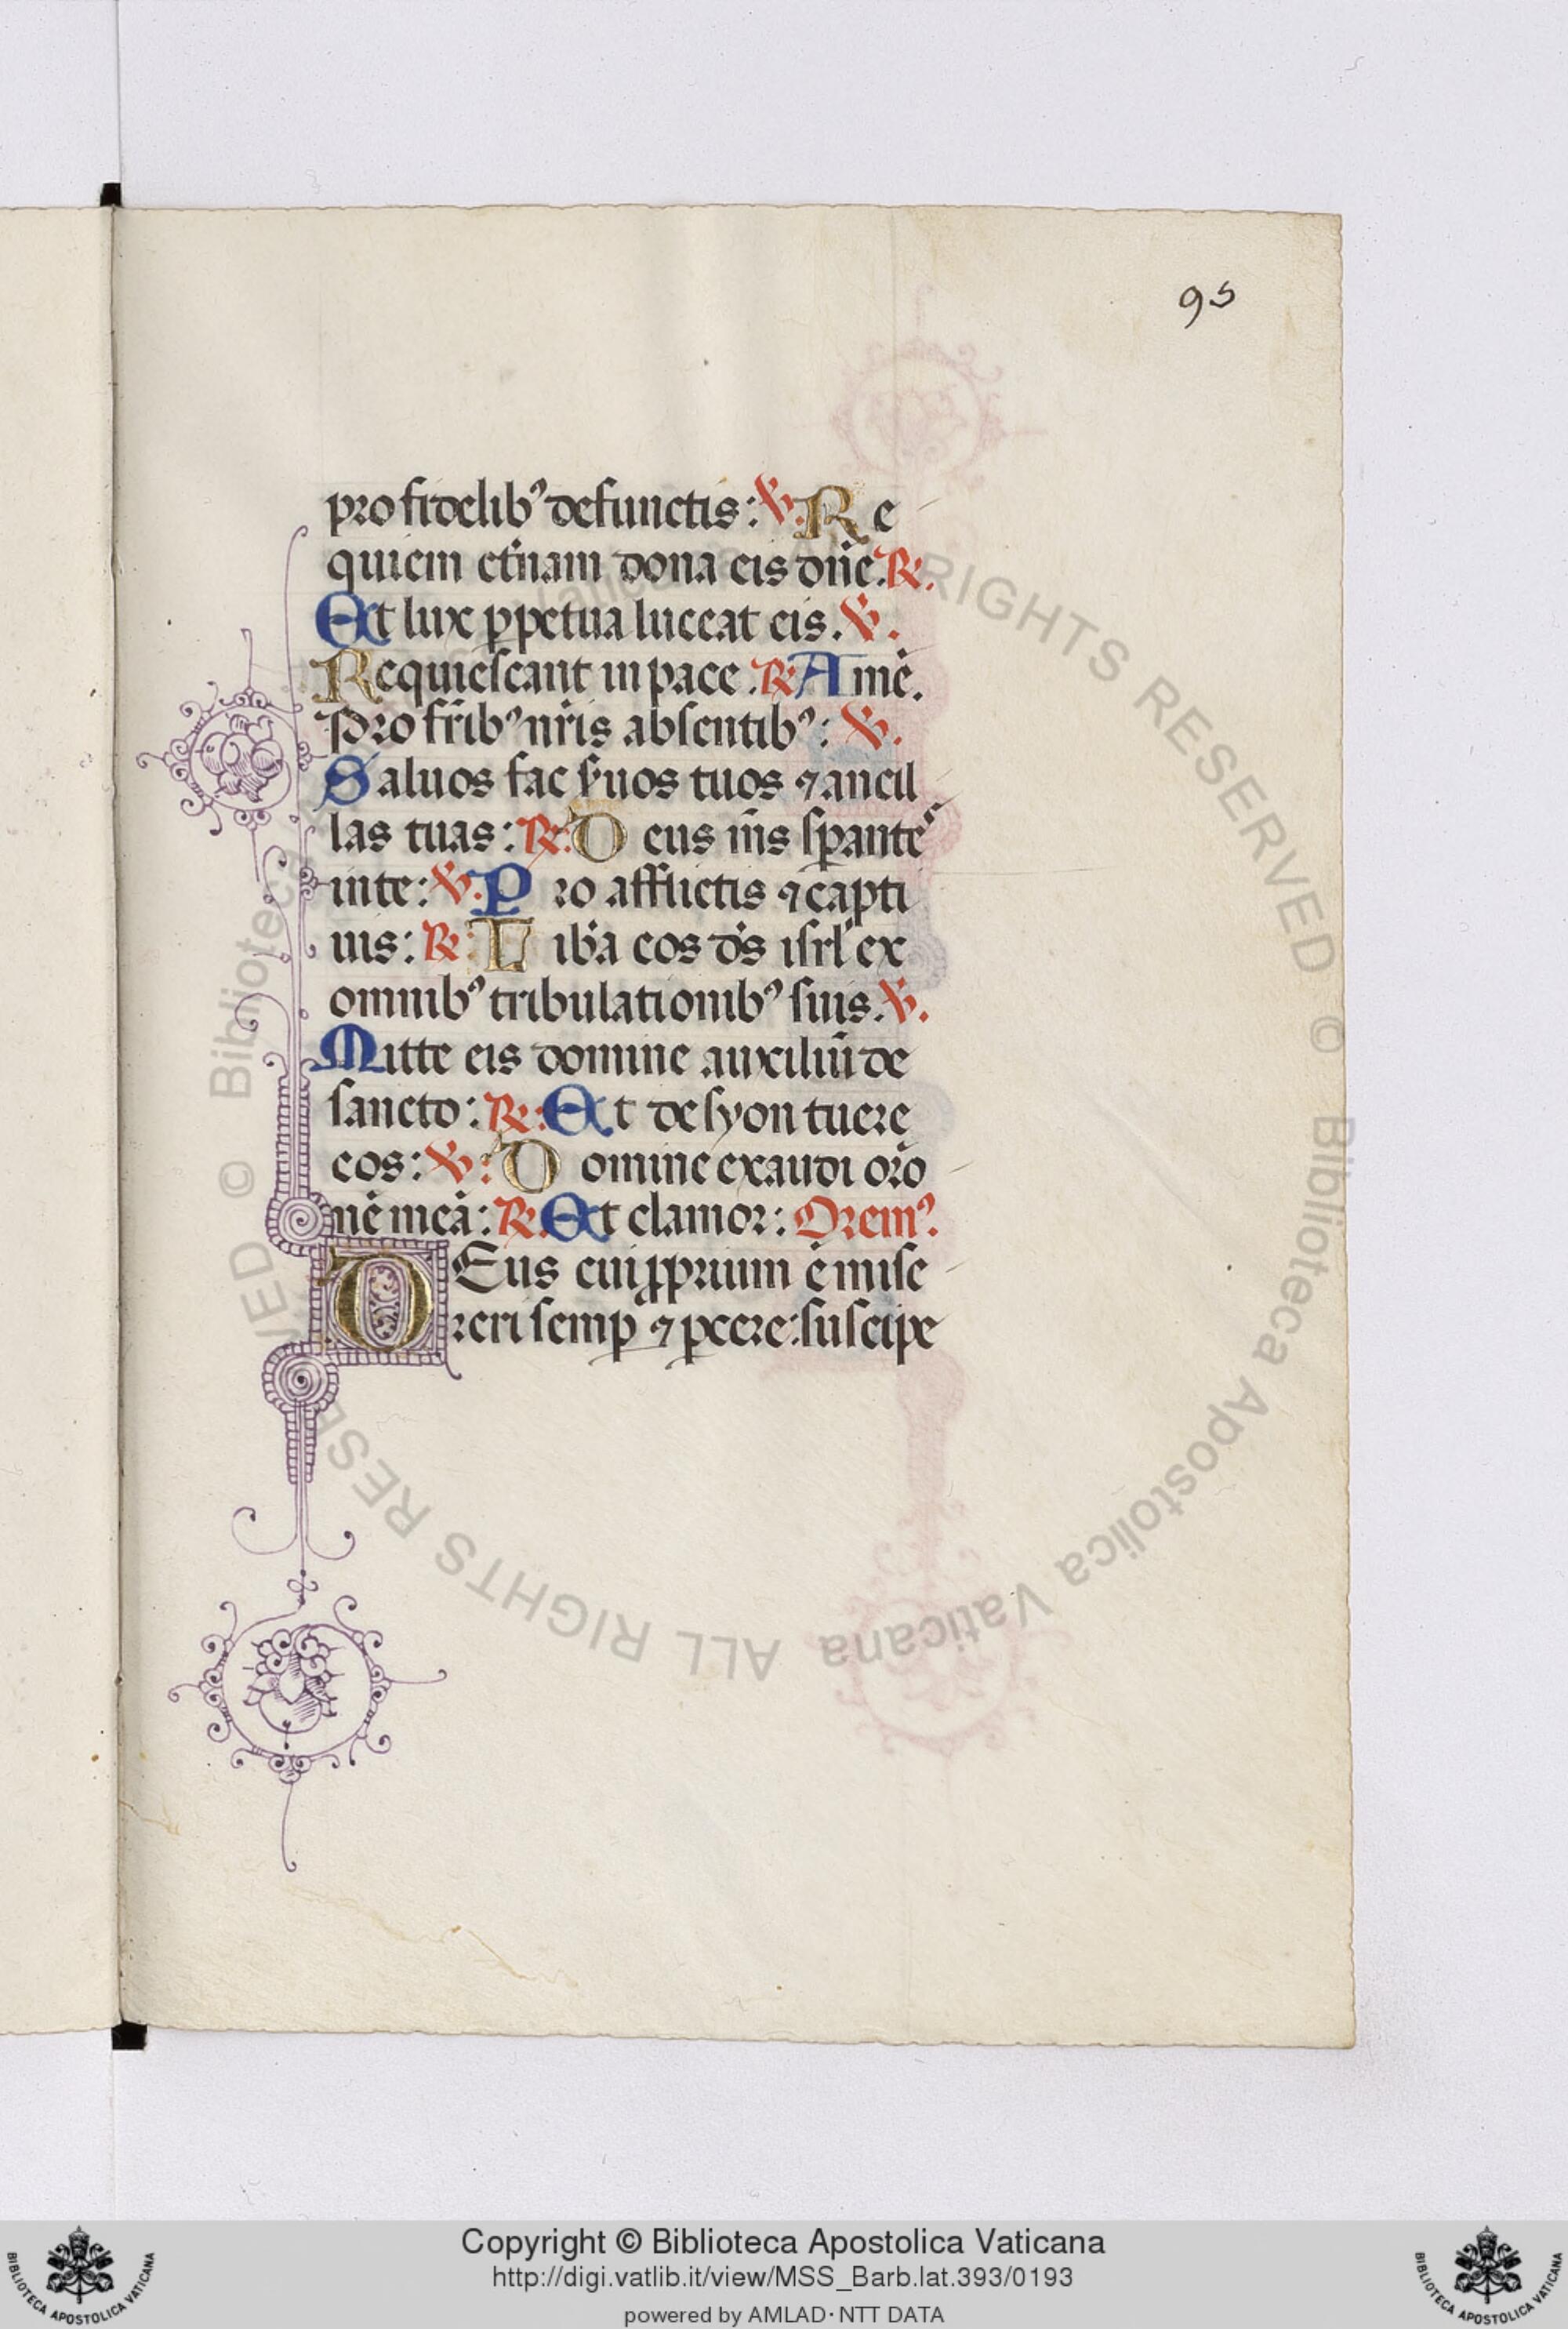 95
pro fidelibꝰ defunctis: ℣. Re
quiem et̾nam dona eis dn̄e. ℟.
Et lux ꝑpetua luceat eis. ℣.
Requiescant in pace. ℟. Amē.
Pro fr̄ibꝰ nr̄is absentibꝰ: ℣.
Saluos fac s̾uos tuos ⁊ ancil
las tuas: ℟. Deus m̄s sꝑantes
in te: ℣. Pro afflictis ⁊ capti
uis: ℟. Lib̾a eos d̄s isrl̾ ex
omnibꝰ tribulationibꝰ suis. ℣.
Mitte eis domine auxiliū de
sancto: ℟: Et de syon tuere
eos: ℣: Domine exaudi oro
nē meā: ℟. Et clamor: Oremꝰ.
DEus cui ꝓprium ē mise
reri semꝑ ⁊ ꝑcere: suscipe
© Biblioteca Apostolica Vaticana ALL RIGHTS RESERVED
Copyright © Biblioteca Apostolica Vaticana
http://digi.vatlib.it/view/MSS_Barb.lat.393/0193
powered by AMLAD·NTT DATA
BIBLIOTECA APOSTOLICA VATICANA
BIBLIOTECA APOSTOLICA VATICANA